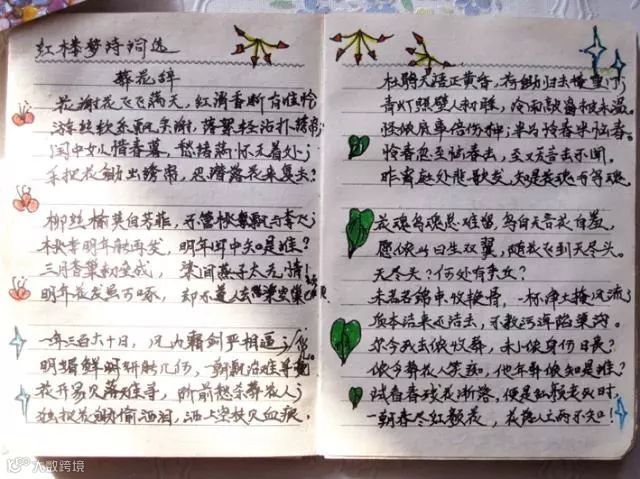 红楼梦诗词选
葬花辞
花谢花飞飞满天，红消香断有谁怜
游丝软系飘春榭，落絮轻沾扑绣帘
闺中女儿惜春暮，愁绪满怀无着处；
手把花锄出绣帘，忍踏落花来复去？
柳丝榆荚自芳菲，不管桃飘与李飞；
桃李明年能再发，明年闺中知是谁？
三月香巢初垒成，梁间燕子太无情！
明年花发虽可啄，却不道人去梁空巢
一年三百六十日，风刀霜剑严相逼；
明媚鲜妍能几何，一朝飘泊难寻觅
花开易见落难寻，阶前愁杀葬花人；
独把花锄偷洒泪，洒上空枝见血痕。
杜鹃无语正黄昏，荷锄归去掩重门；
青灯照壁人初睡，冷雨敲窗被未温。
怪侬底事倍伤神；半为怜春半恼春。
怜春忽至恼春去，至又无言去不闻。
昨宵庭外悲歌发，知是花魂与鸟魂。
花魂鸟魂总难留，鸟自无言花自羞，
愿侬此日生双翼，随花飞到天尽头。
天尽头？何处有香丘？
未若锦囊收艳骨，一抔净土掩风流；
质本洁来还洁去，不教污淖陷渠沟。
尔今死去侬收葬，未卜侬身何日丧？
侬今葬花人笑痴，他年葬侬知是谁？
试看春残花渐落，便是红颜老死时，
一朝春尽红颜老，花落人亡两不知！
大数跨境